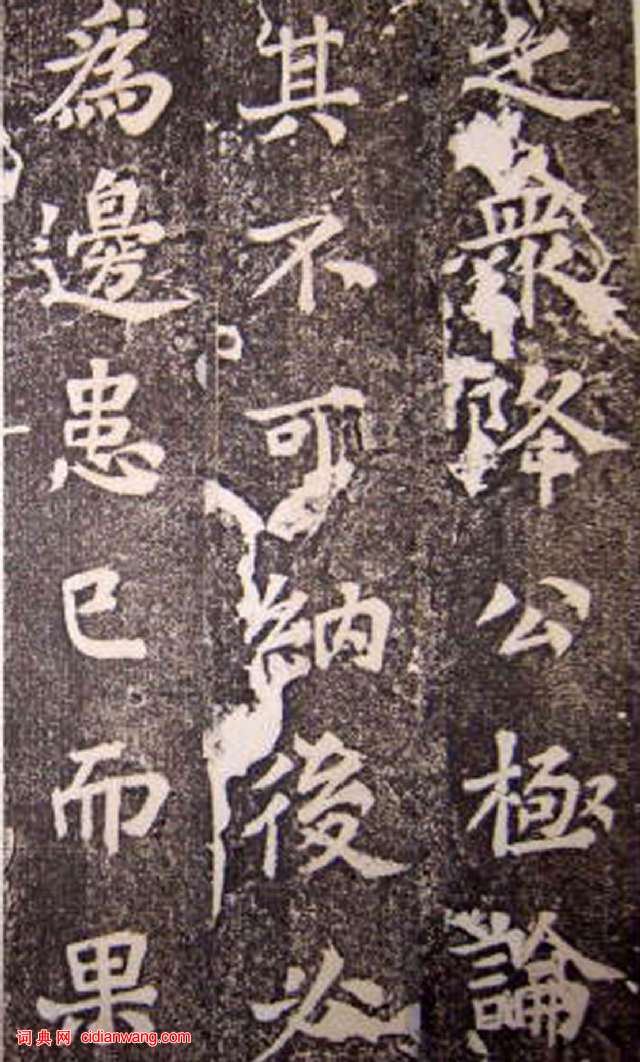 之衆降公極論
其不可納後必
為邊患已而果
词典网 cidianwang.com